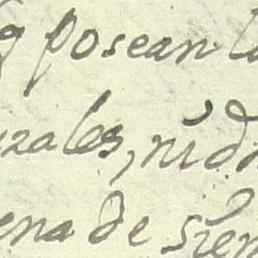 posean la
zales, ni d
ena de sien